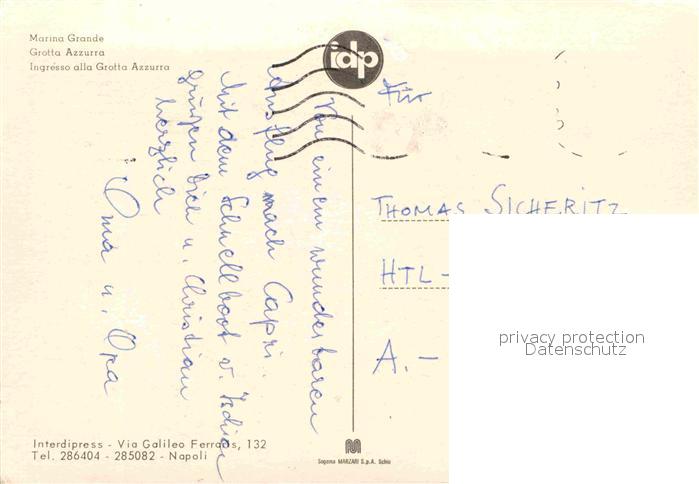 Marina Grande
Grotta Azzurra
Ingresso alla Grotta Azzurra
idp
Für
Von einem wunderbaren
Ausflug nach Capri
Mit dem Schnellboot v. Ischia
grüßen Dich u. Christian
herzlich
Oma u. Opa
THOMAS SICHERITZ
HTL -
A. -
privacy protection
Datenschutz
Interdipress - Via Galileo Ferraris, 132
Tel. 286404 - 285082 - Napoli
Sogema MARZARI S.p.A. Schio